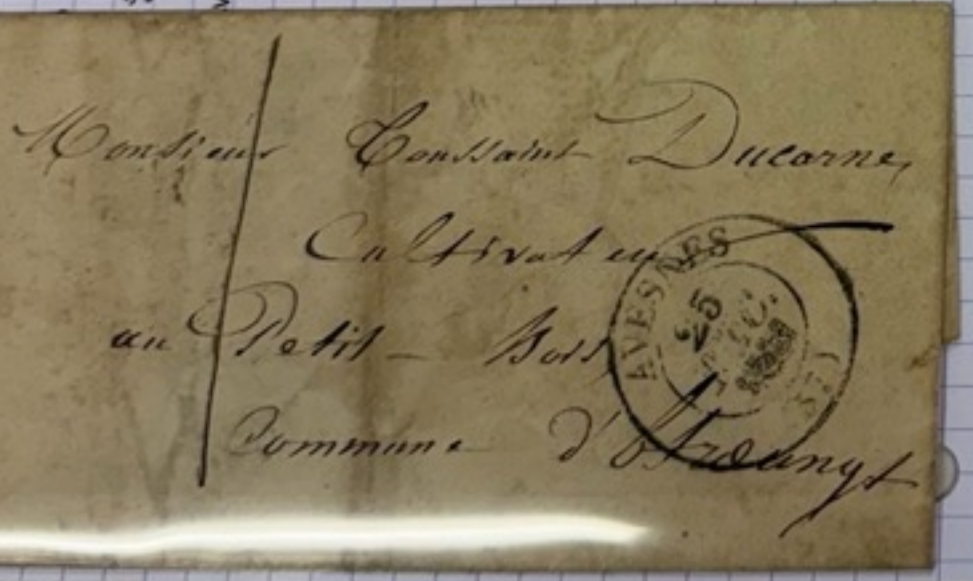 Monsieur Toussaint Ducarne,
Cultivateur
au Petit-Bois
Commune d'Etrœungt
AVESNES
25